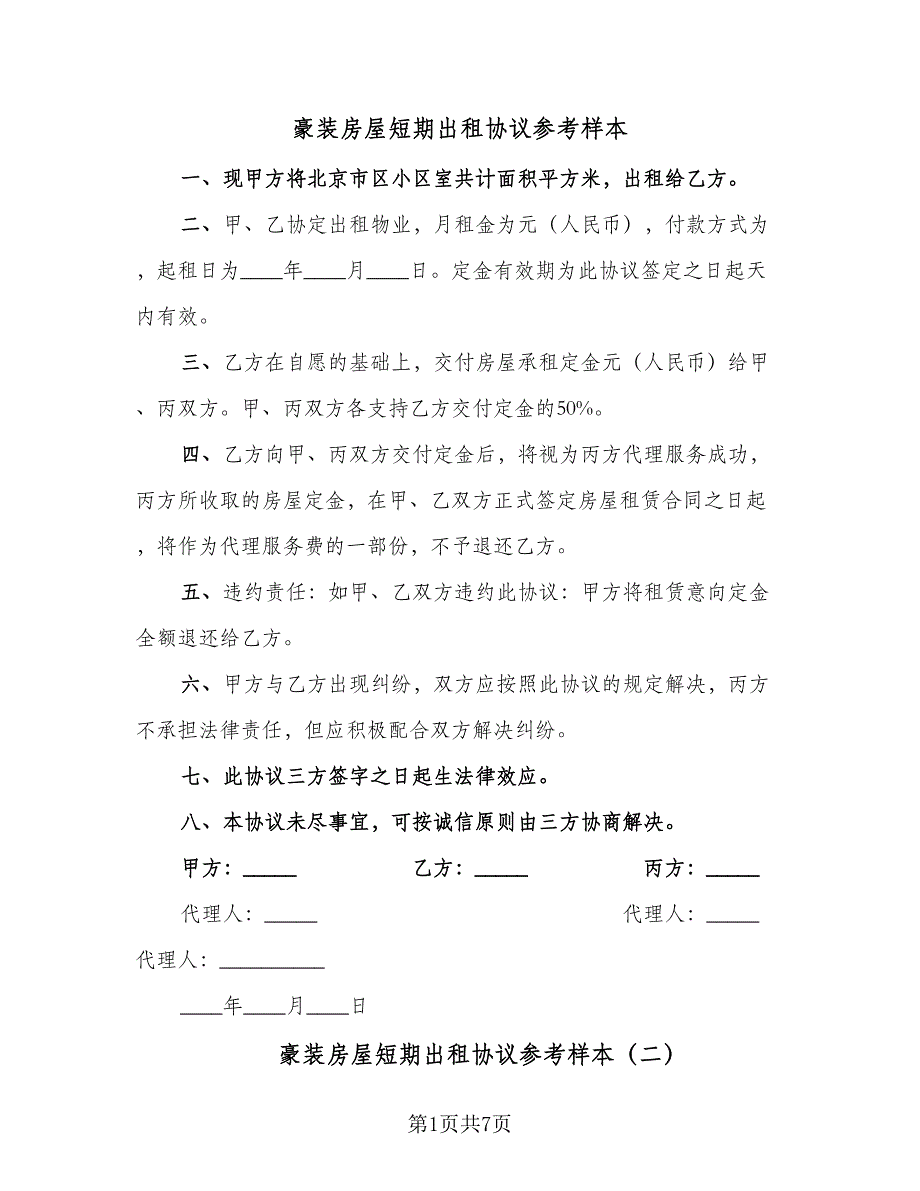 豪装房屋短期出租协议参考样本
一、现甲方将北京市区小区室共计面积平方米，出租给乙方。
二、甲、乙协定出租物业，月租金为元（人民币），付款方式为
，起租日为____年____月____日。定金有效期为此协议签定之日起天
内有效。
三、乙方在自愿的基础上，交付房屋承租定金元（人民币）给甲
、丙双方。甲、丙双方各支持乙方交付定金的50%。
四、乙方向甲、丙双方交付定金后，将视为丙方代理服务成功，
丙方所收取的房屋定金，在甲、乙双方正式签定房屋租赁合同之日起
，将作为代理服务费的一部份，不予退还乙方。
五、违约责任：如甲、乙双方违约此协议：甲方将租赁意向定金
全额退还给乙方。
六、甲方与乙方出现纠纷，双方应按照此协议的规定解决，丙方
不承担法律责任，但应积极配合双方解决纠纷。
七、此协议三方签字之日起生法律效应。
八、本协议未尽事宜，可按诚信原则由三方协商解决。
甲方：_____ 乙方：_____ 丙方：_____
代理人：_____ 代理人：_____
代理人：__________
____年____月____日
豪装房屋短期出租协议参考样本（二）
第1页共7页